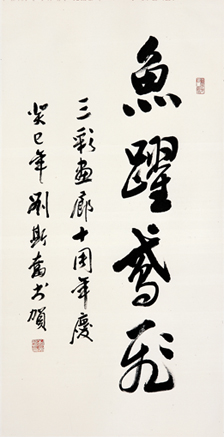 魚躍鳶飛
三彩画廊十周年慶
癸巳年劉斯奮书賀